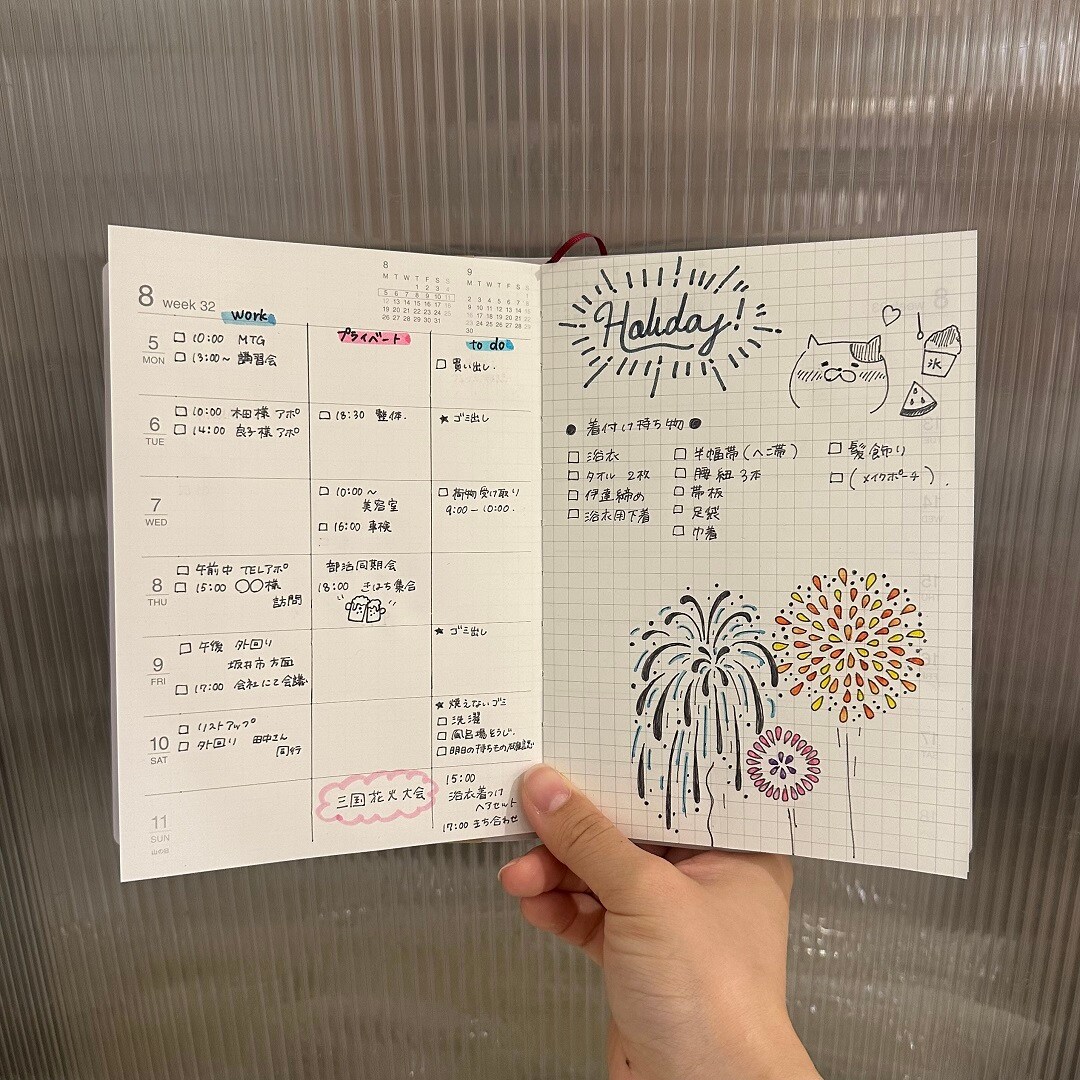 8 week 32
8
M T W T F S S
1 2 3 4
5 6 7 8 9 10 11
12 13 14 15 16 17 18
19 20 21 22 23 24 25
26 27 28 29 30 31
9
M T W T F S S
1
2 3 4 5 6 7 8
9 10 11 12 13 14 15
16 17 18 19 20 21 22
23 24 25 26 27 28 29
30
work
プライベート
to do
5
MON
□ 10:00 MTG
□ 13:00~ 講習会
□ 買い出し.
6
TUE
□ 10:00 木田様 アポ
□ 14:00 良子様 アポ
□ 18:30 整体.
★ ゴミ出し
7
WED
□ 10:00 ~
美容室
□ 16:00 車検
□ 荷物受け取り
9:00 - 10:00.
8
THU
□ 午前中 TELアポ
□ 15:00 ○○様
訪問
部活同期会
18:00 きはち集合
9
FRI
□ 午後 外回り
坂井市方面
□ 17:00 会社にて会議
★ ゴミ出し
10
SAT
□ リストアップ
□ 外回り 田中さん
同行
★ 燃えないゴミ
□ 洗濯
□ 風呂場そうじ.
□ 明日の持ちもの確認
11
SUN
山の日
三国花火大会
15:00
浴衣着つけ
ヘアセット
17:00 まち合わせ
Holiday!
氷
● 着付け持ち物 ●
□ 浴衣
□ タオル 2枚
□ 伊達締め
□ 浴衣用下着
□ 半幅帯(へこ帯)
□ 腰紐 3本
□ 帯板
□ 足袋
□ 巾着
□ 髪飾り
□ (メイクポーチ).